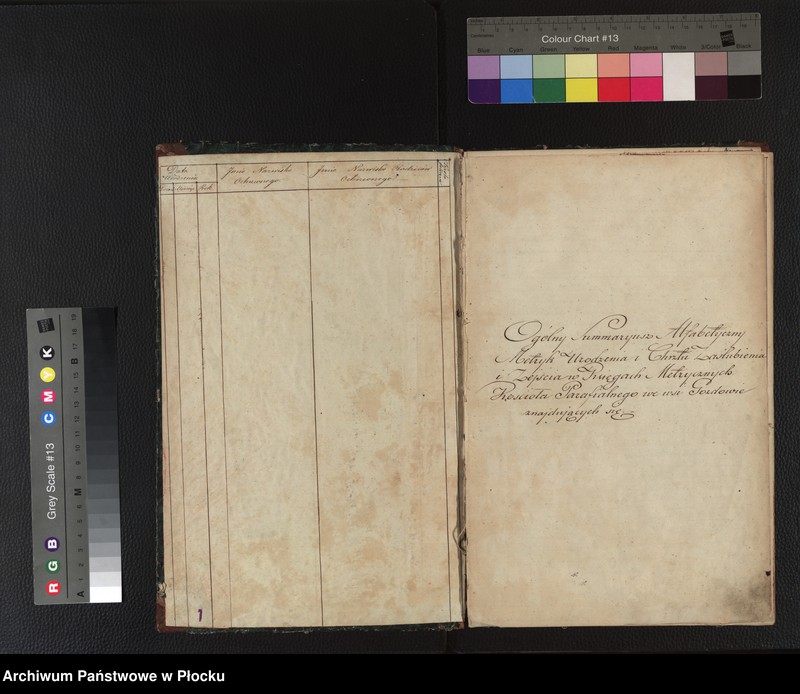 Colour Chart #13
Blue Cyan Green Yellow Red Magenta White 3/Color Black
Data Urodzenia
Rok
Jmie Nazwisko Ochrzconego
Jmie Nazwisko Rodziców Ochrzconego
Ogólny Summaryusz Alfabetyczny
Metryk Urodzenia i Chrztu Zaślubienia
i Zejścia w Księgach Metrycznych
Kościoła Parafialnego we wsi Gozdowie
znajdujących się
Grey Scale #13
R G B C M Y K
A 1 2 3 4 5 6 M 8 9 10 11 12 13 14 15 B 17 18 19
1
Archiwum Państwowe w Płocku